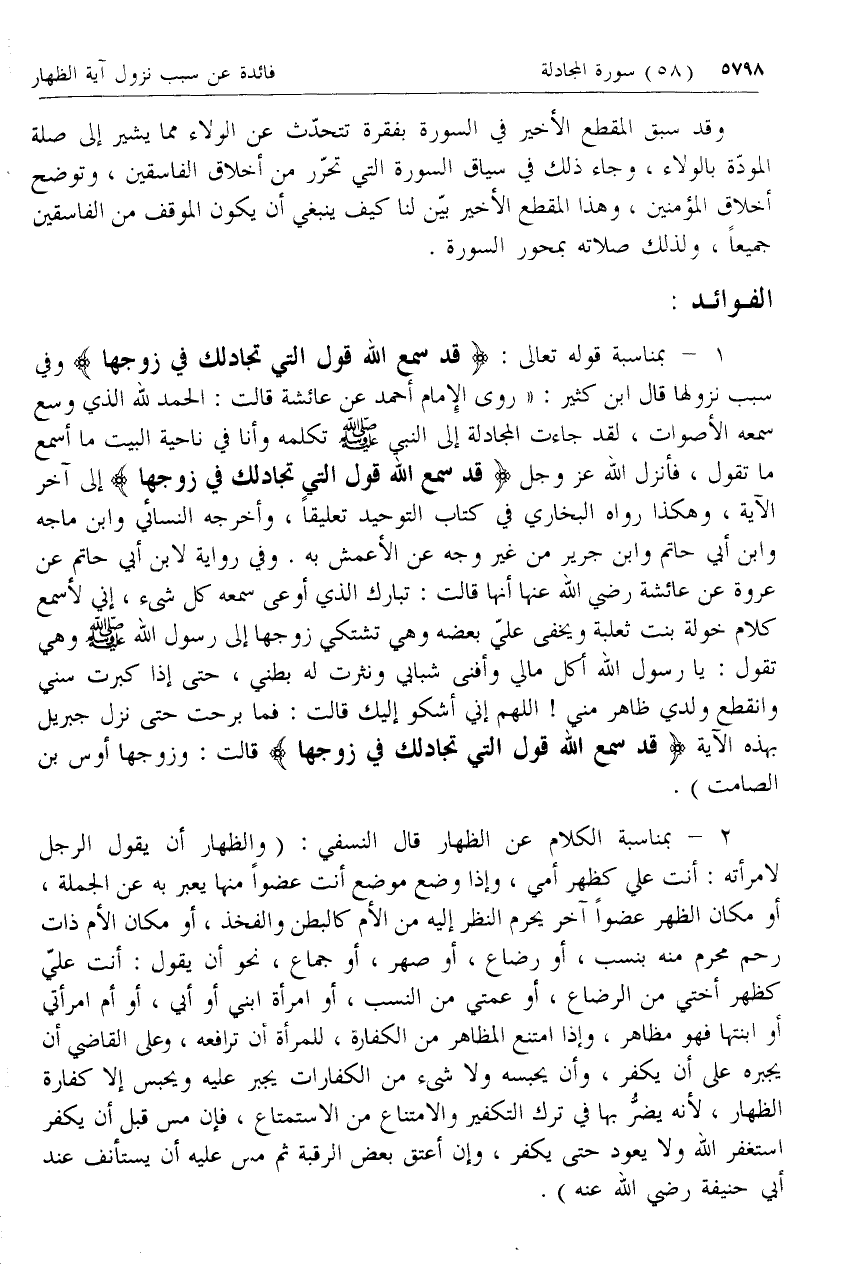 ٥٧٩٨ (٥٨) سورة المجادلة فائدة عن سبب نزول آية الظهار
وقد سبق المقطع الأخير في السورة بفقرة تتحدّث عن الولاء مما يشير إلى صلة
المودّة بالولاء ، وجاء ذلك في سياق السورة التي تحرّر من أخلاق الفاسقين ، وتوضح
أخلاق المؤمنين ، وهذا المقطع الأخير بيّن لنا كيف ينبغي أن يكون الموقف من الفاسقين
جميعاً ، ولذلك صلاته بمحور السورة .
الفـوائـد :
١ – بمناسبة قوله تعالى : ﴿ قد سمع الله قول التي تجادلك في زوجها ﴾ وفي
سبب نزولها قال ابن كثير : « روى الإمام أحمد عن عائشة قالت : الحمد لله الذي وسع
سمعه الأصوات ، لقد جاءت المجادلة إلى النبي ﷺ تكلمه وأنا في ناحية البيت ما أسمع
ما تقول ، فأنزل الله عز وجل ﴿ قد سمع الله قول التي تجادلك في زوجها ﴾ إلى آخر
الآية ، وهكذا رواه البخاري في كتاب التوحيد تعليقاً ، وأخرجه النسائي وابن ماجه
وابن أبي حاتم وابن جرير من غير وجه عن الأعمش به . وفي رواية لابن أبي حاتم عن
عروة عن عائشة رضي الله عنها أنها قالت : تبارك الذي أوعى سمعه كل شيء ، إني لأسمع
كلام خولة بنت ثعلبة ويخفى عليّ بعضه وهي تشتكي زوجها إلى رسول الله ﷺ وهي
تقول : يا رسول الله أكل مالي وأفنى شبابي ونثرت له بطني ، حتى إذا كبرت سني
وانقطع ولدي ظاهر مني ! اللهم إني أشكو إليك قالت : فما برحت حتى نزل جبريل
بهذه الآية ﴿ قد سمع الله قول التي تجادلك في زوجها ﴾ قالت : وزوجها أوس بن
الصامت ) .
٢ – بمناسبة الكلام عن الظهار قال النسفي : ( والظهار أن يقول الرجل
لامرأته : أنت علي كظهر أمي ، وإذا وضع موضع أنت عضواً منها يعبر به عن الجملة ،
أو مكان الظهر عضواً آخر يحرم النظر إليه من الأم كالبطن والفخذ ، أو مكان الأم ذات
رحم محرم منه بنسب ، أو رضاع ، أو صهر ، أو جماع ، نحو أن يقول : أنت عليّ
كظهر أختي من الرضاع ، أو عمتي من النسب ، أو امرأة ابني أو أبي ، أو أم امرأتي
أو ابنتها فهو مظاهر ، وإذا امتنع المظاهر من الكفارة ، للمرأة أن ترافعه ، وعلى القاضي أن
يجبره على أن يكفر ، وأن يحبسه ولا شيء من الكفارات يجبر عليه ويحبس إلا كفارة
الظهار ، لأنه يضرُّ بها في ترك التكفير والامتناع من الاستمتاع ، فإن مس قبل أن يكفر
استغفر الله ولا يعود حتى يكفر ، وإن أعتق بعض الرقبة ثم مس عليه أن يستأنف عند
أبي حنيفة رضي الله عنه ) .